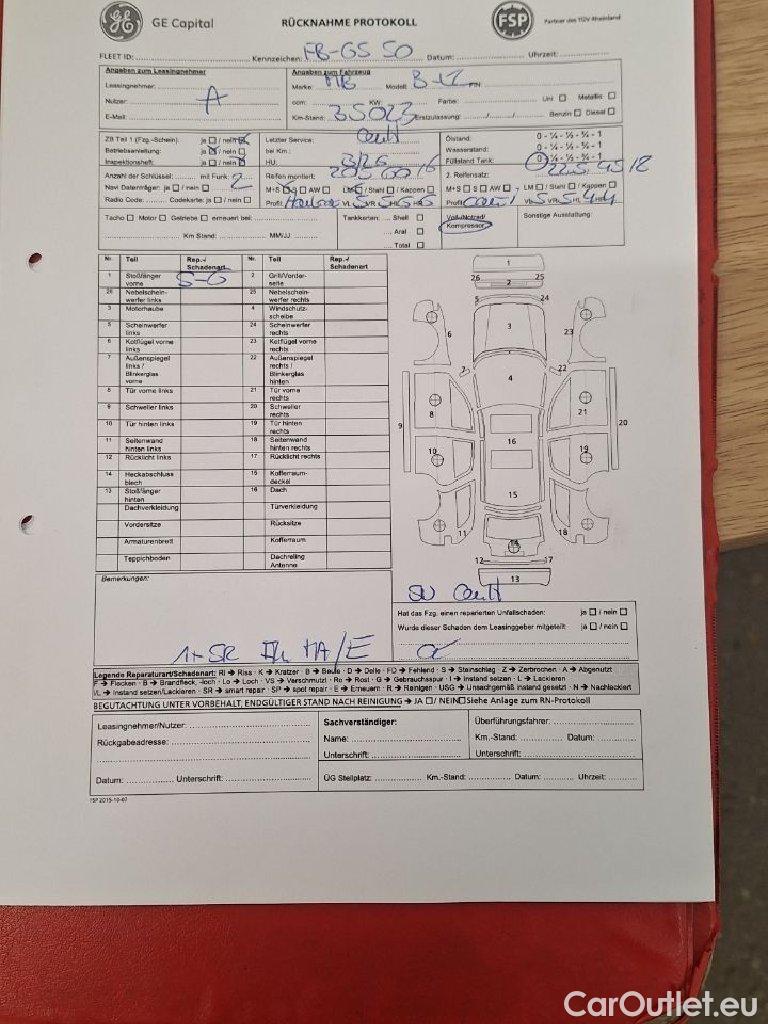 GE Capital RÜCKNAHME PROTOKOLL FSP Partner des TÜV Rheinland
FLEET ID: Kennzeichen: FB-GS 50 Datum: Uhrzeit:
Angaben zum Leasingnehmer Angaben zum Fahrzeug
Leasingnehmer: Marke: MB Modell: FIN:
Nutzer: A ccm: KW: Farbe: Uni Metallic
E-Mail: Km-Stand: 35023 Erstzulassung: Benzin Diesel
ZB Teil 1 (Fzg.-Schein): ja / nein Letzter Service: Ölstand: 0 - ¼ - ½ - ¾ - 1
Betriebsanleitung: ja / nein bei Km.: Wasserstand: 0 - ¼ - ½ - ¾ - 1
Inspektionsheft: ja / nein HU: 3/26 Füllstand Tank: 0 - ¼ - ½ - ¾ - 1
Anzahl der Schlüssel: mit Funk: 2 Reifen montiert: 205 60 16 2. Reifensatz: 225 45 18
Navi Datenträger: ja / nein M+S AW LM / Stahl / Kappen M+S AW LM / Stahl / Kappen
Radio Code: Codekarte: ja / nein Profil: VL 5 VR 5 HL 5 HR 5 Profil: VL 5 VR 5 HL 4 HR 4
Tacho Motor Getriebe erneuert bei: Tankkarten: Shell Voll-/Notrad/ Sonstige Ausstattung:
Aral Kompressor
Km Stand: MM/JJ: Total
Nr. Teil Rep.-/ Schadenart Nr. Teil Rep.-/ Schadenart
1 Stoßfänger vorne S-G 2 Grill/Vorderseite
26 Nebelscheinwerfer links 25 Nebelscheinwerfer rechts
3 Motorhaube 4 Windschutzscheibe
5 Scheinwerfer links 24 Scheinwerfer rechts
6 Kotflügel vorne links 23 Kotflügel vorne rechts
7 Außenspiegel links / Blinkerglas vorne 22 Außenspiegel rechts / Blinkerglas hinten
8 Tür vorne links 21 Tür vorne rechts
9 Schweller links 20 Schweller rechts
10 Tür hinten links 19 Tür hinten rechts
11 Seitenwand hinten links 18 Seitenwand hinten rechts
12 Rücklicht links 17 Rücklicht rechts
14 Heckabschlussblech 15 Kofferraumdeckel
13 Stoßfänger hinten 16 Dach
Dachverkleidung Türverkleidung
Vordersitze Rücksitze
Armaturenbrett Kofferraum
Teppichboden Dachreling Antenne
1
26 2 25
5 24
6 3 23
7 22
4
8 21
9 20
10 16 19
15
11 18
14
12 17
13
Bemerkungen:
Hat das Fzg. einen reparierten Unfallschaden: ja / nein
Wurde dieser Schaden dem Leasinggeber mitgeteilt: ja / nein
Legende Reparaturart/Schadenart: RI → Riss · K → Kratzer · B → Beule · D → Delle · FD → Fehlend · S → Steinschlag · Z → Zerbrochen · A → Abgenutzt
F → Flecken · B → Brandfleck, -loch · Lo → Loch · VS → Verschmutzt · Ro → Rost · G → Gebrauchsspur · I → Instand setzen · L → Lackieren
I/L → Instand setzen/Lackieren · SR → smart repair · SP → spot repair · E → Erneuern · R → Reinigen · USG → Unsachgemäß instand gesetzt · N → Nachlackiert
BEGUTACHTUNG UNTER VORBEHALT, ENDGÜLTIGER STAND NACH REINIGUNG → JA / NEIN Siehe Anlage zum RN-Protokoll
Leasingnehmer/Nutzer: Sachverständiger: Überführungsfahrer:
Rückgabeadresse: Name: Km.-Stand: Datum:
Unterschrift: Unterschrift:
Datum: Unterschrift: ÜG Stellplatz: Km.-Stand: Datum: Uhrzeit:
FSP 2015-10-07
CarOutlet.eu